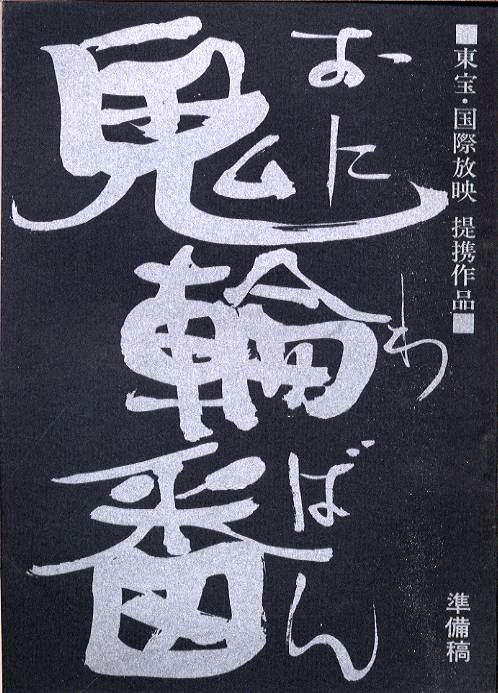 ■東宝・国際放映 提携作品■
おにわばん
鬼輪番
準備稿